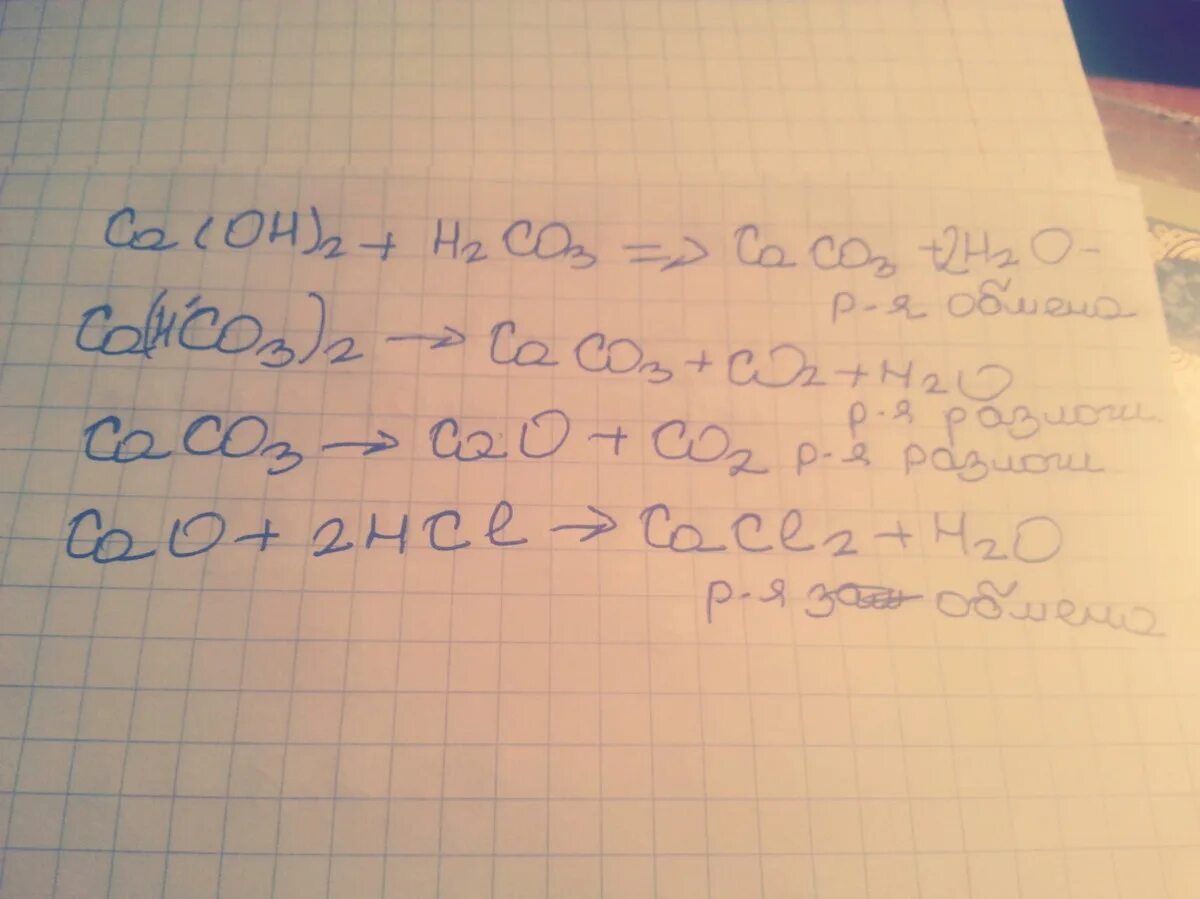 Ca(OH)₂ + H₂CO₃ => CaCO₃ + 2H₂O -
р-я обмена
Ca(HCO₃)₂ → CaCO₃ + CO₂ + H₂O
р-я разлож
CaCO₃ → CaO + CO₂ р-я разлож
CaO + 2HCl → CaCl₂ + H₂O
р-я обмена